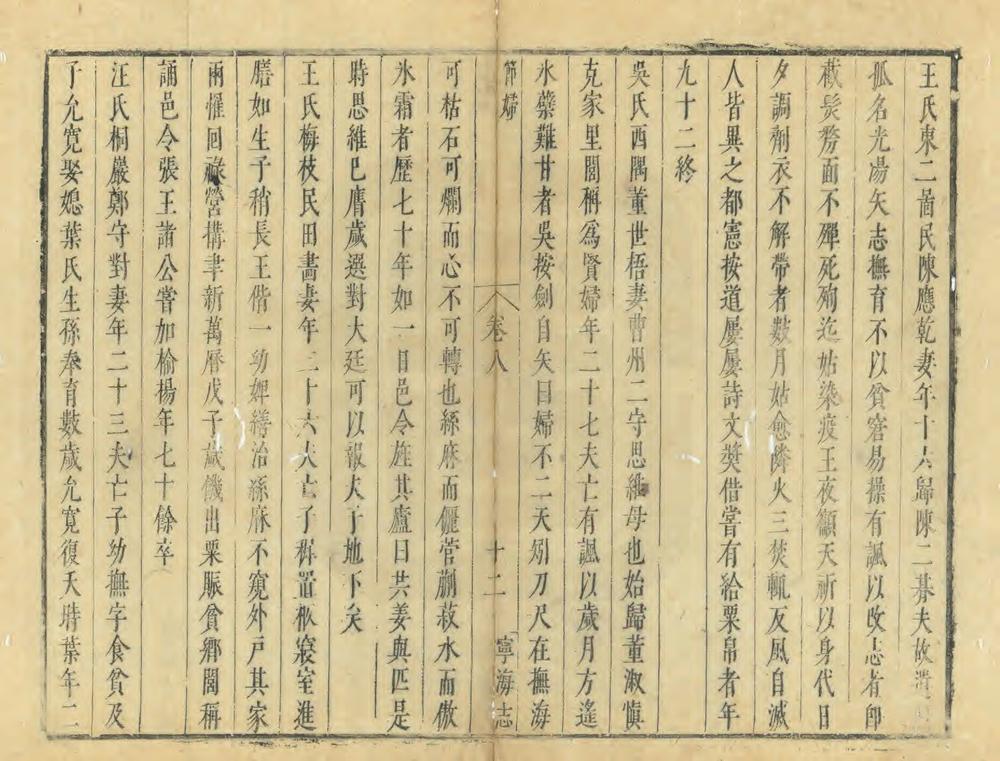 王氏東二啚民陳應乾妻年十六歸陳二碁夫故遺
孤名光湯矢志撫育不以貧窘易操有諷以改志者卽
截髪剺面不殫死殉迄姑染疫王夜籲天祈以身代日
夕調劑衣不解帶者數月姑愈隣火三焚輒反風自滅
人皆異之都憲按道屢屢詩文獎借嘗有給粟帛者年
九十二終
吳氏酉隅董世梧妻曹州二守思維母也始歸董淑愼
克家里閭稱為賢婦年二十七夫亡有諷以歲月方遙
氷蘗難甘者吳按劍自矢曰婦不二天矧刀尺在撫海
節婦
卷八
十二
寧海志
可枯石可爛而心不可轉也絲麻而儷菅蒯菽水而傲
氷霜者歷七十年如一日邑令旌其廬曰共姜與匹是
時思維已膺歲選對大廷可以報夫子地下矣
王氏梅枝民田畵妻年二十六夫亡子穉置柩寢室進
膳如生子稍長王偕一幼婢繕治絲麻不窺外戸其家
兩懼回祿營搆聿新萬曆戊子歲饑出粟賑貧鄉閭稱
誦邑令張王諸公嘗加揄揚年七十餘卒
汪氏桐巖鄭守對妻年二十三夫亡子幼撫字食貧及
子允寛娶媳葉氏生孫奉育數歲允寛復夭時葉年二